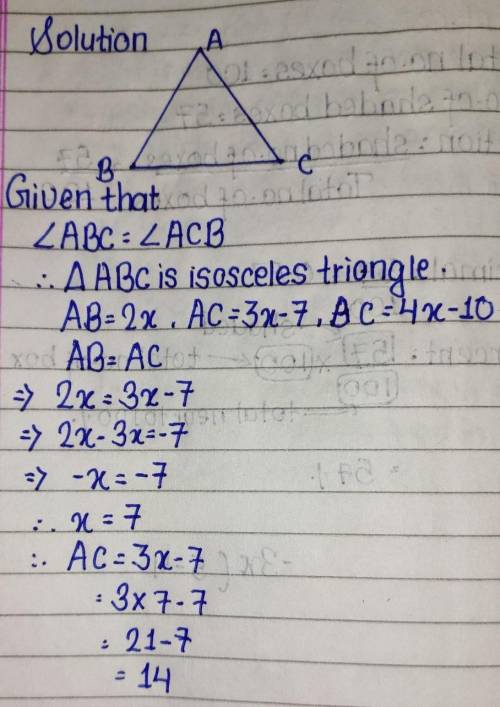 Solution
A
B
C
Given that
∠ABC = ∠ACB
∴ △ABC is isosceles triangle.
AB = 2x , AC = 3x-7 , BC = 4x-10
AB = AC
⇒ 2x = 3x-7
⇒ 2x - 3x = -7
⇒ -x = -7
∴ x = 7
∴ AC = 3x-7
= 3x7-7
= 21-7
= 14